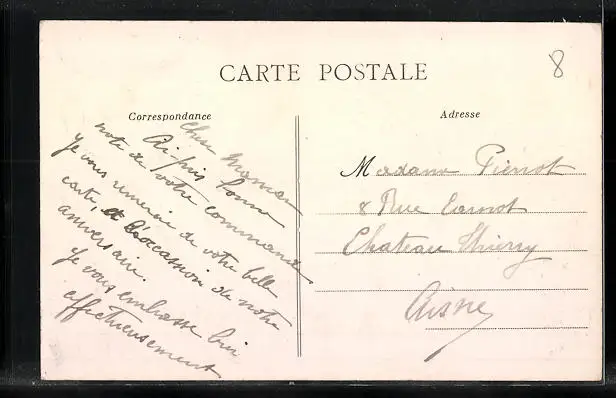 CARTE POSTALE
8
Correspondance
Adresse
Chère Maman
Ai pris bonne
note de votre commande
Je vous remercie de votre belle
carte, à l'occassion de notre
anniversaire.
Je vous embrasse bien
affectueusement
Madame Pierrot
8 Rue Carnot
Chateau Thierry
Aisne